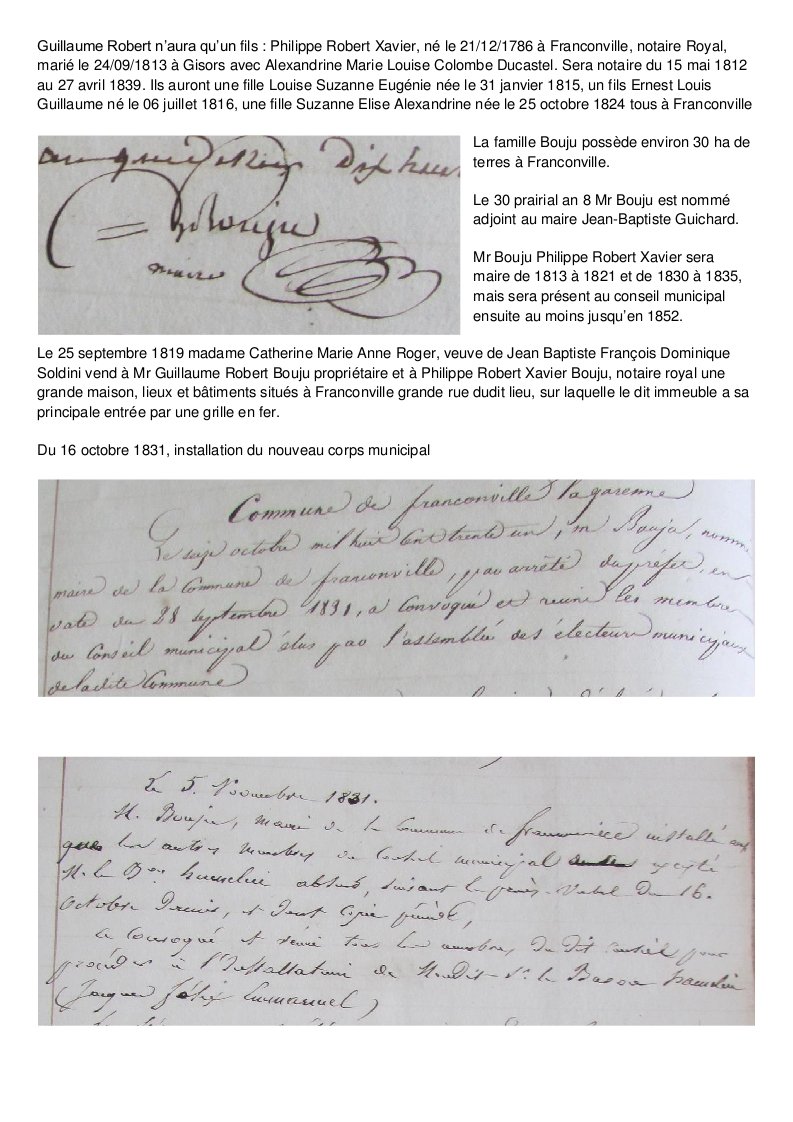 Guillaume Robert n’aura qu’un fils : Philippe Robert Xavier, né le 21/12/1786 à Franconville, notaire Royal,
marié le 24/09/1813 à Gisors avec Alexandrine Marie Louise Colombe Ducastel. Sera notaire du 15 mai 1812
au 27 avril 1839. Ils auront une fille Louise Suzanne Eugénie née le 31 janvier 1815, un fils Ernest Louis
Guillaume né le 06 juillet 1816, une fille Suzanne Elise Alexandrine née le 25 octobre 1824 tous à Franconville
Dix huit
Bouju
maire
La famille Bouju possède environ 30 ha de
terres à Franconville.
Le 30 prairial an 8 Mr Bouju est nommé
adjoint au maire Jean-Baptiste Guichard.
Mr Bouju Philippe Robert Xavier sera
maire de 1813 à 1821 et de 1830 à 1835,
mais sera présent au conseil municipal
ensuite au moins jusqu’en 1852.
Le 25 septembre 1819 madame Catherine Marie Anne Roger, veuve de Jean Baptiste François Dominique
Soldini vend à Mr Guillaume Robert Bouju propriétaire et à Philippe Robert Xavier Bouju, notaire royal une
grande maison, lieux et bâtiments situés à Franconville grande rue dudit lieu, sur laquelle le dit immeuble a sa
principale entrée par une grille en fer.
Du 16 octobre 1831, installation du nouveau corps municipal
Commune de franconville la garenne
octobre mil huit Cent trente un, m Bouju, nomm
maire de la Commune de franconville, par arrêté du préfet, en
date du 28 septembre 1831, a Convoqué et reuni les membre
du Conseil municipal élus par l'assemblée des électeurs municipaux
de ladite Commune
Le 5. Novembre 1831.
M. Bouju, maire de la Commune de franconville installé
que les autres membres du Conseil municipal excepté
M. le Bon absent, suivant le procès-verbal du 16.
octobre dernier, et dont copie précède,
a Convoqué et réuni tous les membres du dit Conseil pour
procéder à l'Installation de Mondit Sr. le Baron
(Jacques félix Emmanuel)